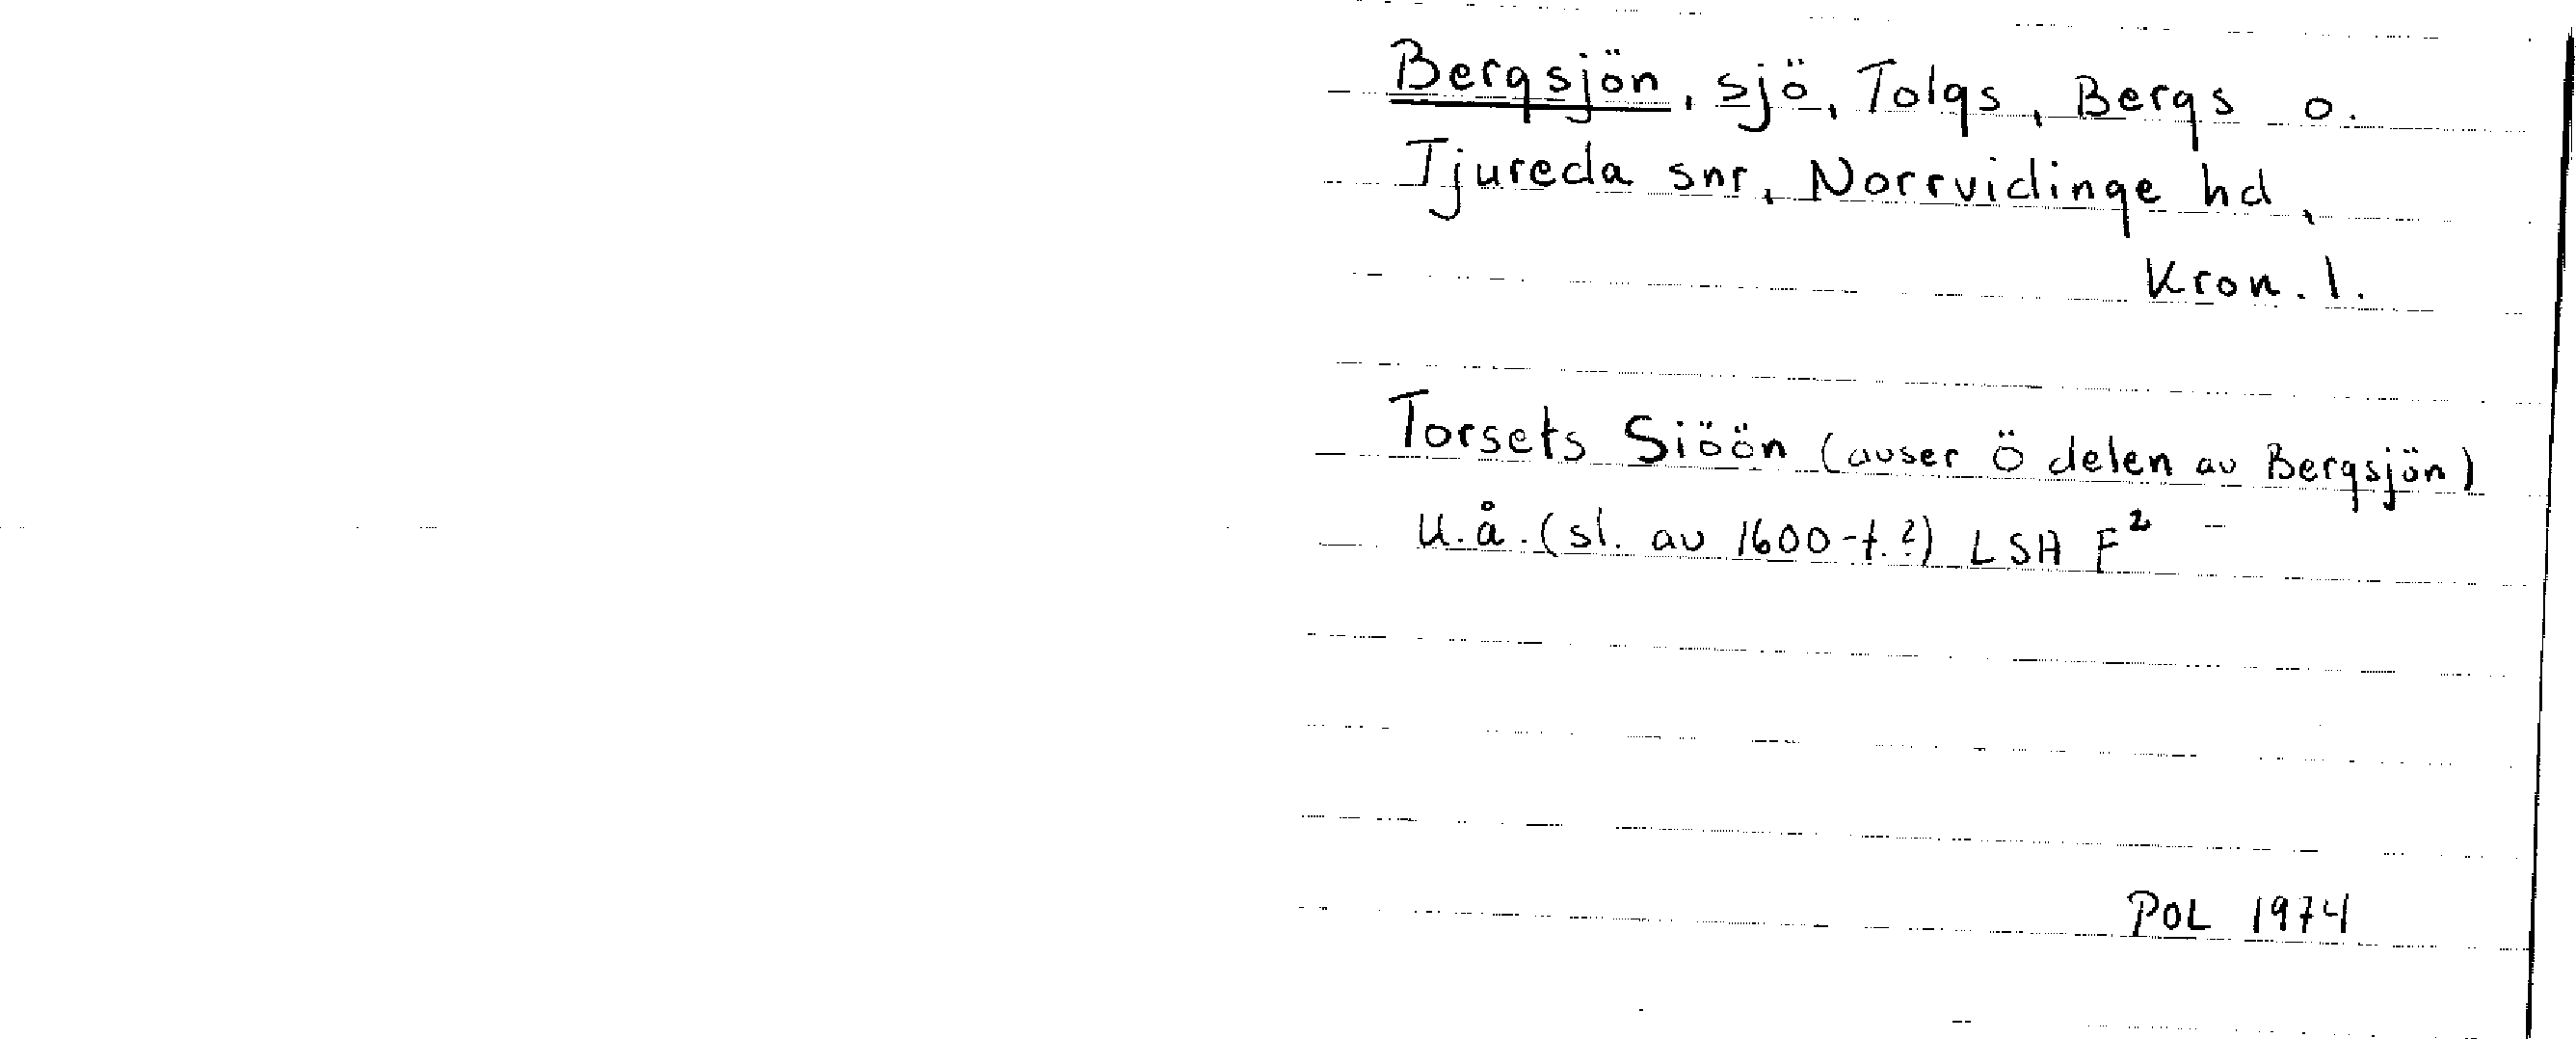 Bergsjön, sjö, Tolgs, Bergs o.
Tjureda snr, Norrvidinge hd,
Kron. l.
Torsets Siöön (avser Ö delen av Bergsjön)
U.å. (sl. av 1600-t.?) LSA F²
POL 1974